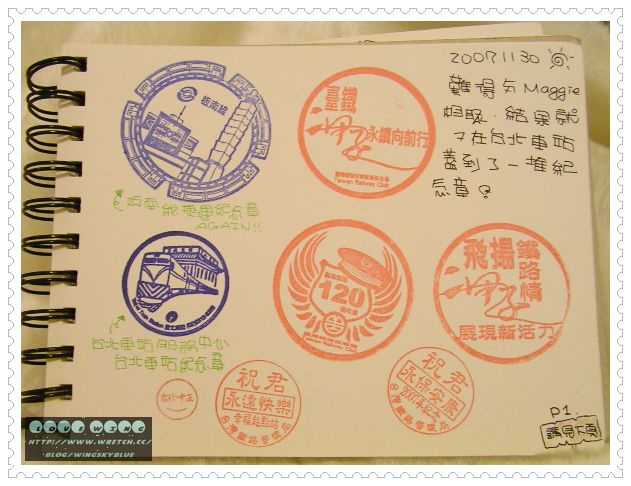 20071130
難得与Maggie
相聚.結果就
在台北車站
蓋到了一堆紀
念章
板南線
臺鐵
永續向前行
Taiwan Railway Club
AGAIN!!
120
Taiwan Railway Club
飛揚
鐵路情
展現新活力
台北車站服務中心
台北車站紀念章
台北中正
祝君
永遠快樂
幸福起點站
台灣鐵路管理局
祝君
永保安康
台灣鐵路管理局
P1.
請見下頁
LOVE WING
HTTP://WWW.WRETCH.CC/
BLOG/WINGSKYBLUE